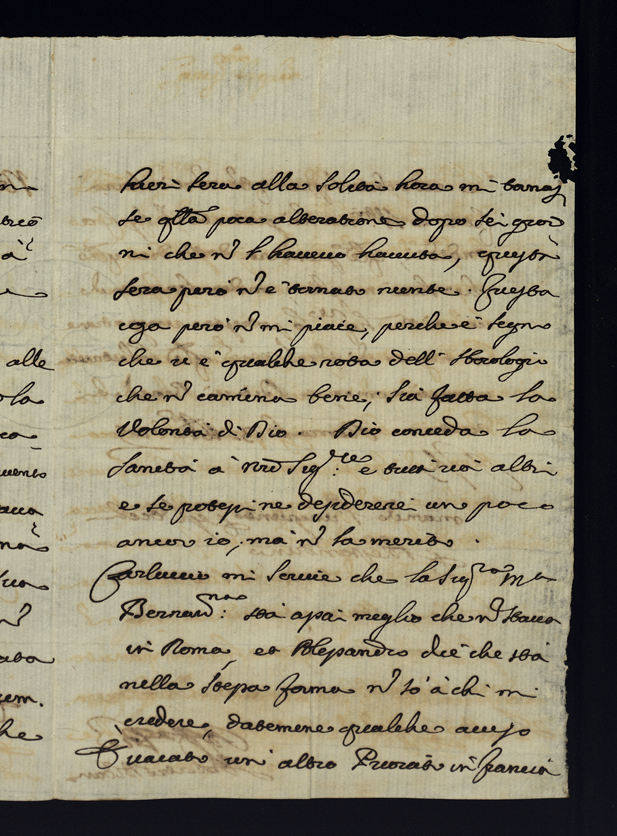 hieri sera alla solita hora mi tornas
se qlla poca alteratione dopo sei gior
ni che nõ l' havevo havuta, questa
sera però nõ è tornato niente. Questa
cosa però nõ mi piace, perche è segno
che vi è qualche rota dell' Horologio
che nõ camina bene; sia fatta la
Volontà di Dio. Dio conceda la
sanità à nrõ Sig.re e tutti voi altri
e se potessi ne desidererei un poco
ancor io, mà nõ la merito.
Carluccio mi scrive che la Sig.ra Mª
Bernard.na: stà assai meglio che nõ stava
in Roma, et Alessandro dice che stà
nella stessa forma nõ sò à chi mi
credere, datemene qualche aviso
È vacato un' altro Priorato in francia
alle
la
nõ
he